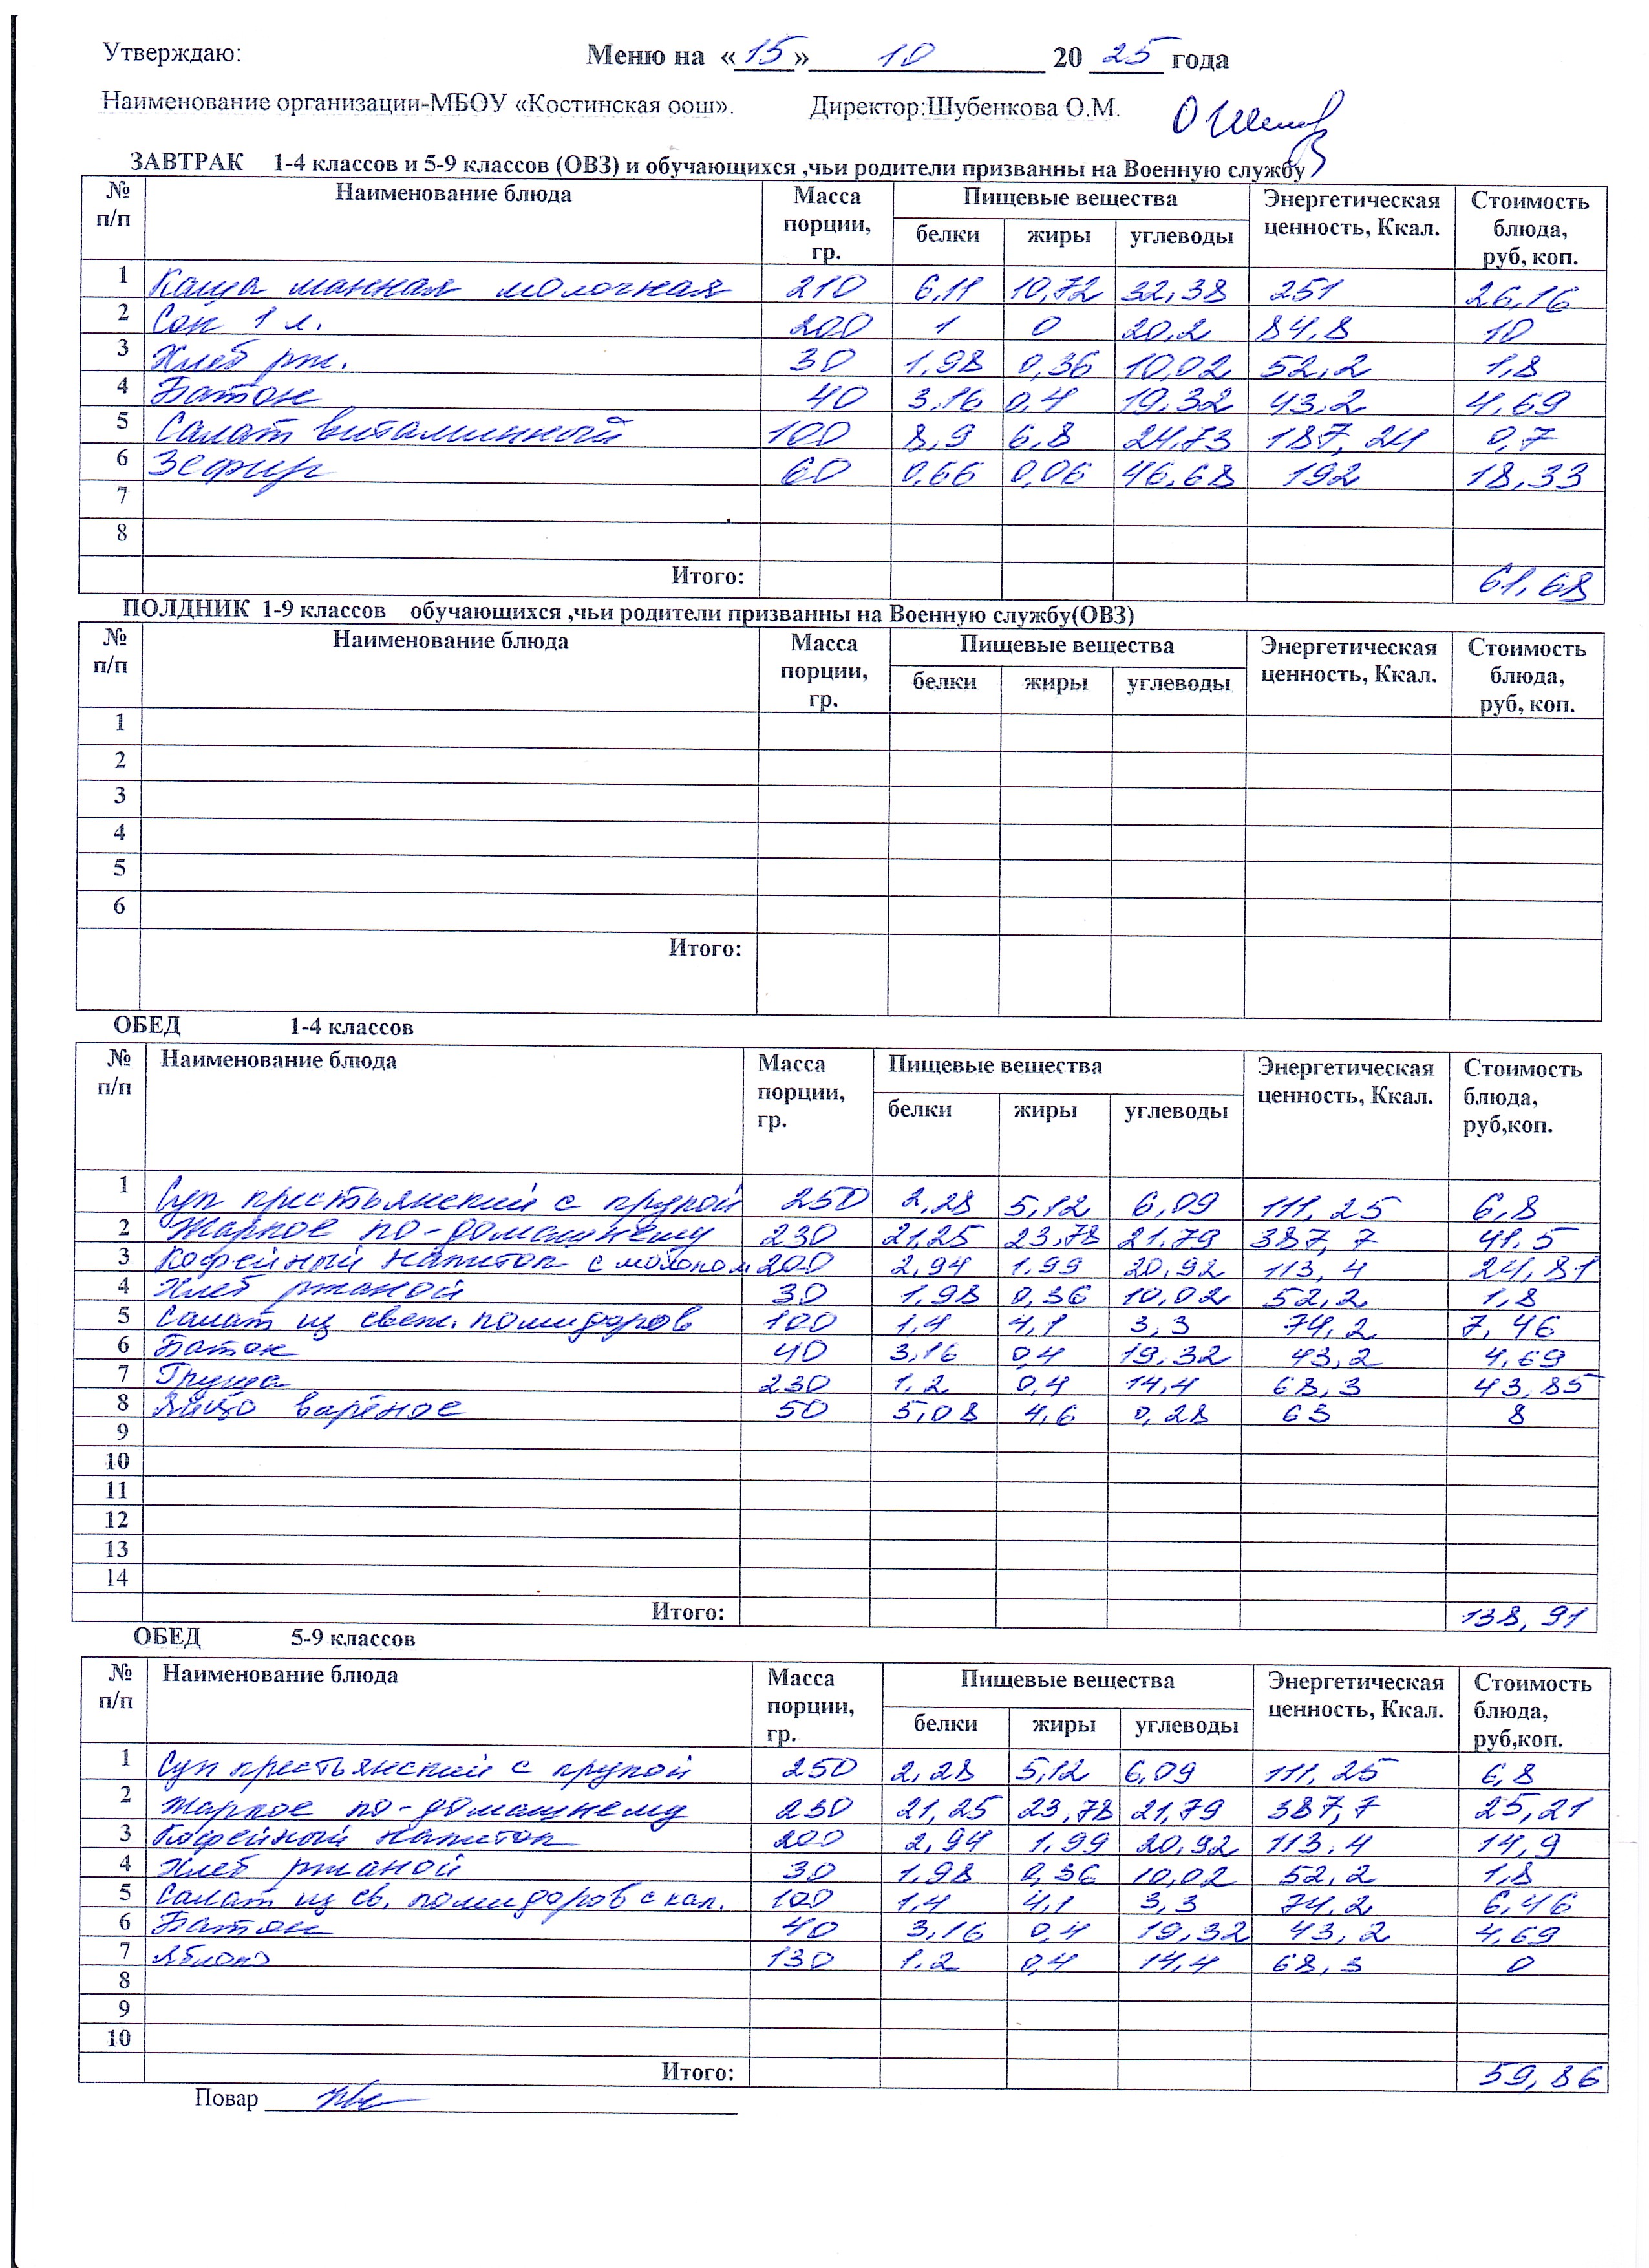 Утверждаю: Меню на «15» 10 20 25 года
Наименование организации-МБОУ «Костинская оош». Директор:Шубенкова О.М.
ЗАВТРАК 1-4 классов и 5-9 классов (ОВЗ) и обучающихся ,чьи родители призванны на Военную службу
№ п/п Наименование блюда Масса порции, гр. Пищевые вещества Энергетическая ценность, Ккал. Стоимость блюда, руб, коп.
белки жиры углеводы
1 Каша манная молочная 210 6,11 10,72 32,38 251 26,16
2 Сок 1 л. 200 1 0 20,2 84,8 10
3 Хлеб рж. 30 1,98 0,36 10,02 52,2 1,8
4 Батон 40 3,16 0,4 19,32 43,2 4,69
5 Салат витаминный 100 8,9 6,8 24,73 187,24 0,7
6 Зефир 60 0,66 0,06 46,68 192 18,33
7
8
Итого: 61,68
ПОЛДНИК 1-9 классов обучающихся ,чьи родители призванны на Военную службу(ОВЗ)
№ п/п Наименование блюда Масса порции, гр. Пищевые вещества Энергетическая ценность, Ккал. Стоимость блюда, руб, коп.
белки жиры углеводы
1
2
3
4
5
6
Итого:
ОБЕД 1-4 классов
№ п/п Наименование блюда Масса порции, гр. Пищевые вещества Энергетическая ценность, Ккал. Стоимость блюда, руб,коп.
белки жиры углеводы
1 Суп крестьянский с крупой 250 2,28 5,12 6,09 111,25 6,8
2 Жаркое по-домашнему 230 21,25 23,78 21,79 387,7 41,5
3 Кофейный напиток с молоком 200 2,94 1,99 20,92 113,4 24,81
4 Хлеб ржаной 30 1,98 0,36 10,02 52,2 1,8
5 Салат из свеж. помидоров 100 1,4 4,1 3,3 74,2 7,46
6 Батон 40 3,16 0,4 19,32 43,2 4,69
7 Груша 230 1,2 0,4 14,4 68,3 43,85
8 Яйцо варёное 50 5,08 4,6 0,28 63 8
9
10
11
12
13
14
Итого: 138,91
ОБЕД 5-9 классов
№ п/п Наименование блюда Масса порции, гр. Пищевые вещества Энергетическая ценность, Ккал. Стоимость блюда, руб,коп.
белки жиры углеводы
1 Суп крестьянский с крупой 250 2,28 5,12 6,09 111,25 6,8
2 Жаркое по-домашнему 230 21,25 23,78 21,79 387,7 25,21
3 Кофейный напиток 200 2,94 1,99 20,92 113,4 14,9
4 Хлеб ржаной 30 1,98 0,36 10,02 52,2 1,8
5 Салат из св. помидоров с кап. 100 1,4 4,1 3,3 74,2 6,46
6 Батон 40 3,16 0,4 19,32 43,2 4,69
7 Яблоко 130 1,2 0,4 14,4 68,3 0
8
9
10
Итого: 59,86
Повар